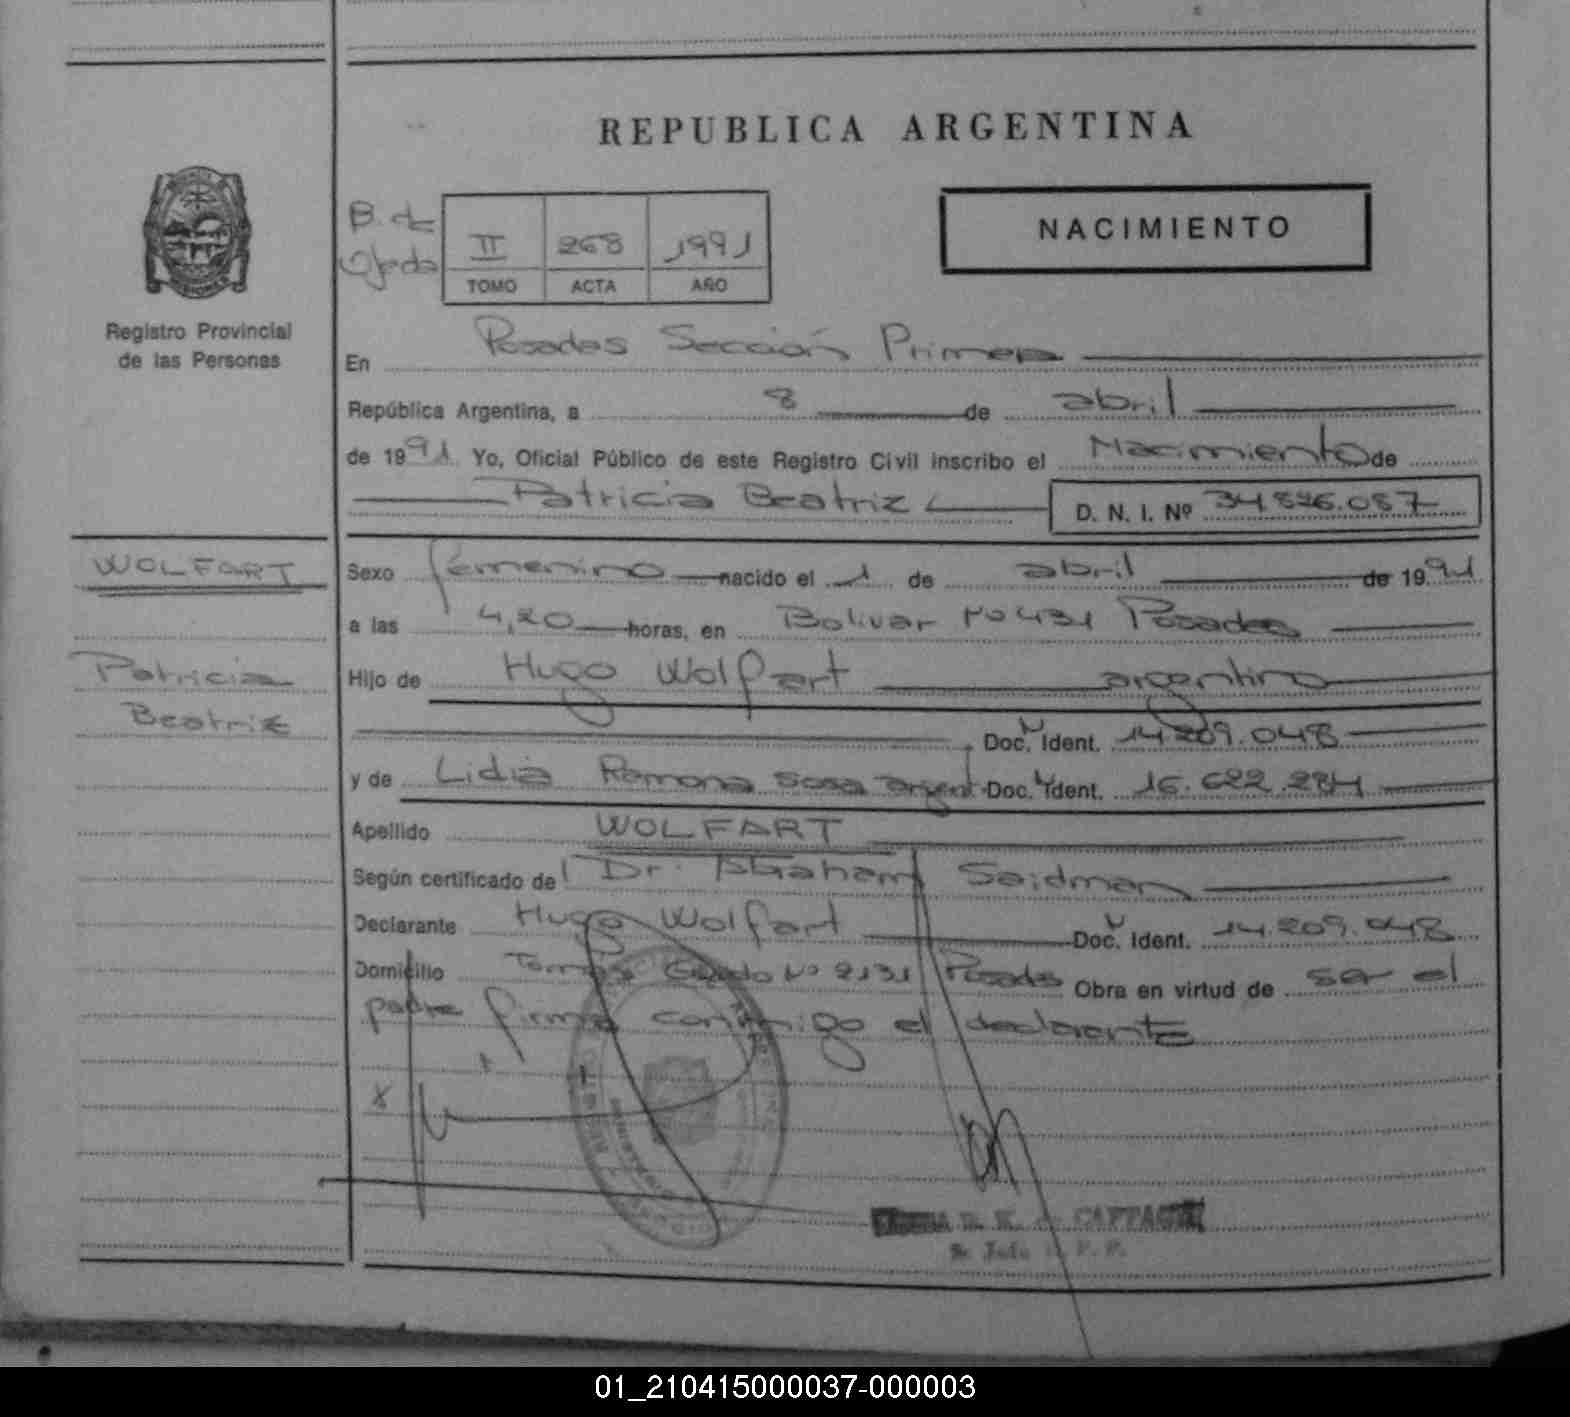 REPUBLICA ARGENTINA
B. de
Ojeda
II 268 1991
TOMO ACTA AÑO
NACIMIENTO
Registro Provincial
de las Personas
En Posadas Sección Primera
República Argentina, a 8 de abril
de 1991 Yo, Oficial Público de este Registro Civil inscribo el Nacimiento de
Patricia Beatriz D. N. I. Nº 34.826.087
WOLFART
Patricia
Beatriz
Sexo femenino nacido el 1 de abril de 1991
a las 4,20 horas, en Bolivar Nº 431 Posadas
Hijo de Hugo Wolfart argentino
Doc. Ident. 14.209.048
y de Lidia Ramona Sosa argent. Doc. Ident. 16.622.284
Apellido WOLFART
Según certificado del Dr. Saidman
Declarante Hugo Wolfart Doc. Ident. 14.209.048
Domicilio Nº 2131 Posadas Obra en virtud de ser el
padre firma conmigo el declarante
01_210415000037-000003